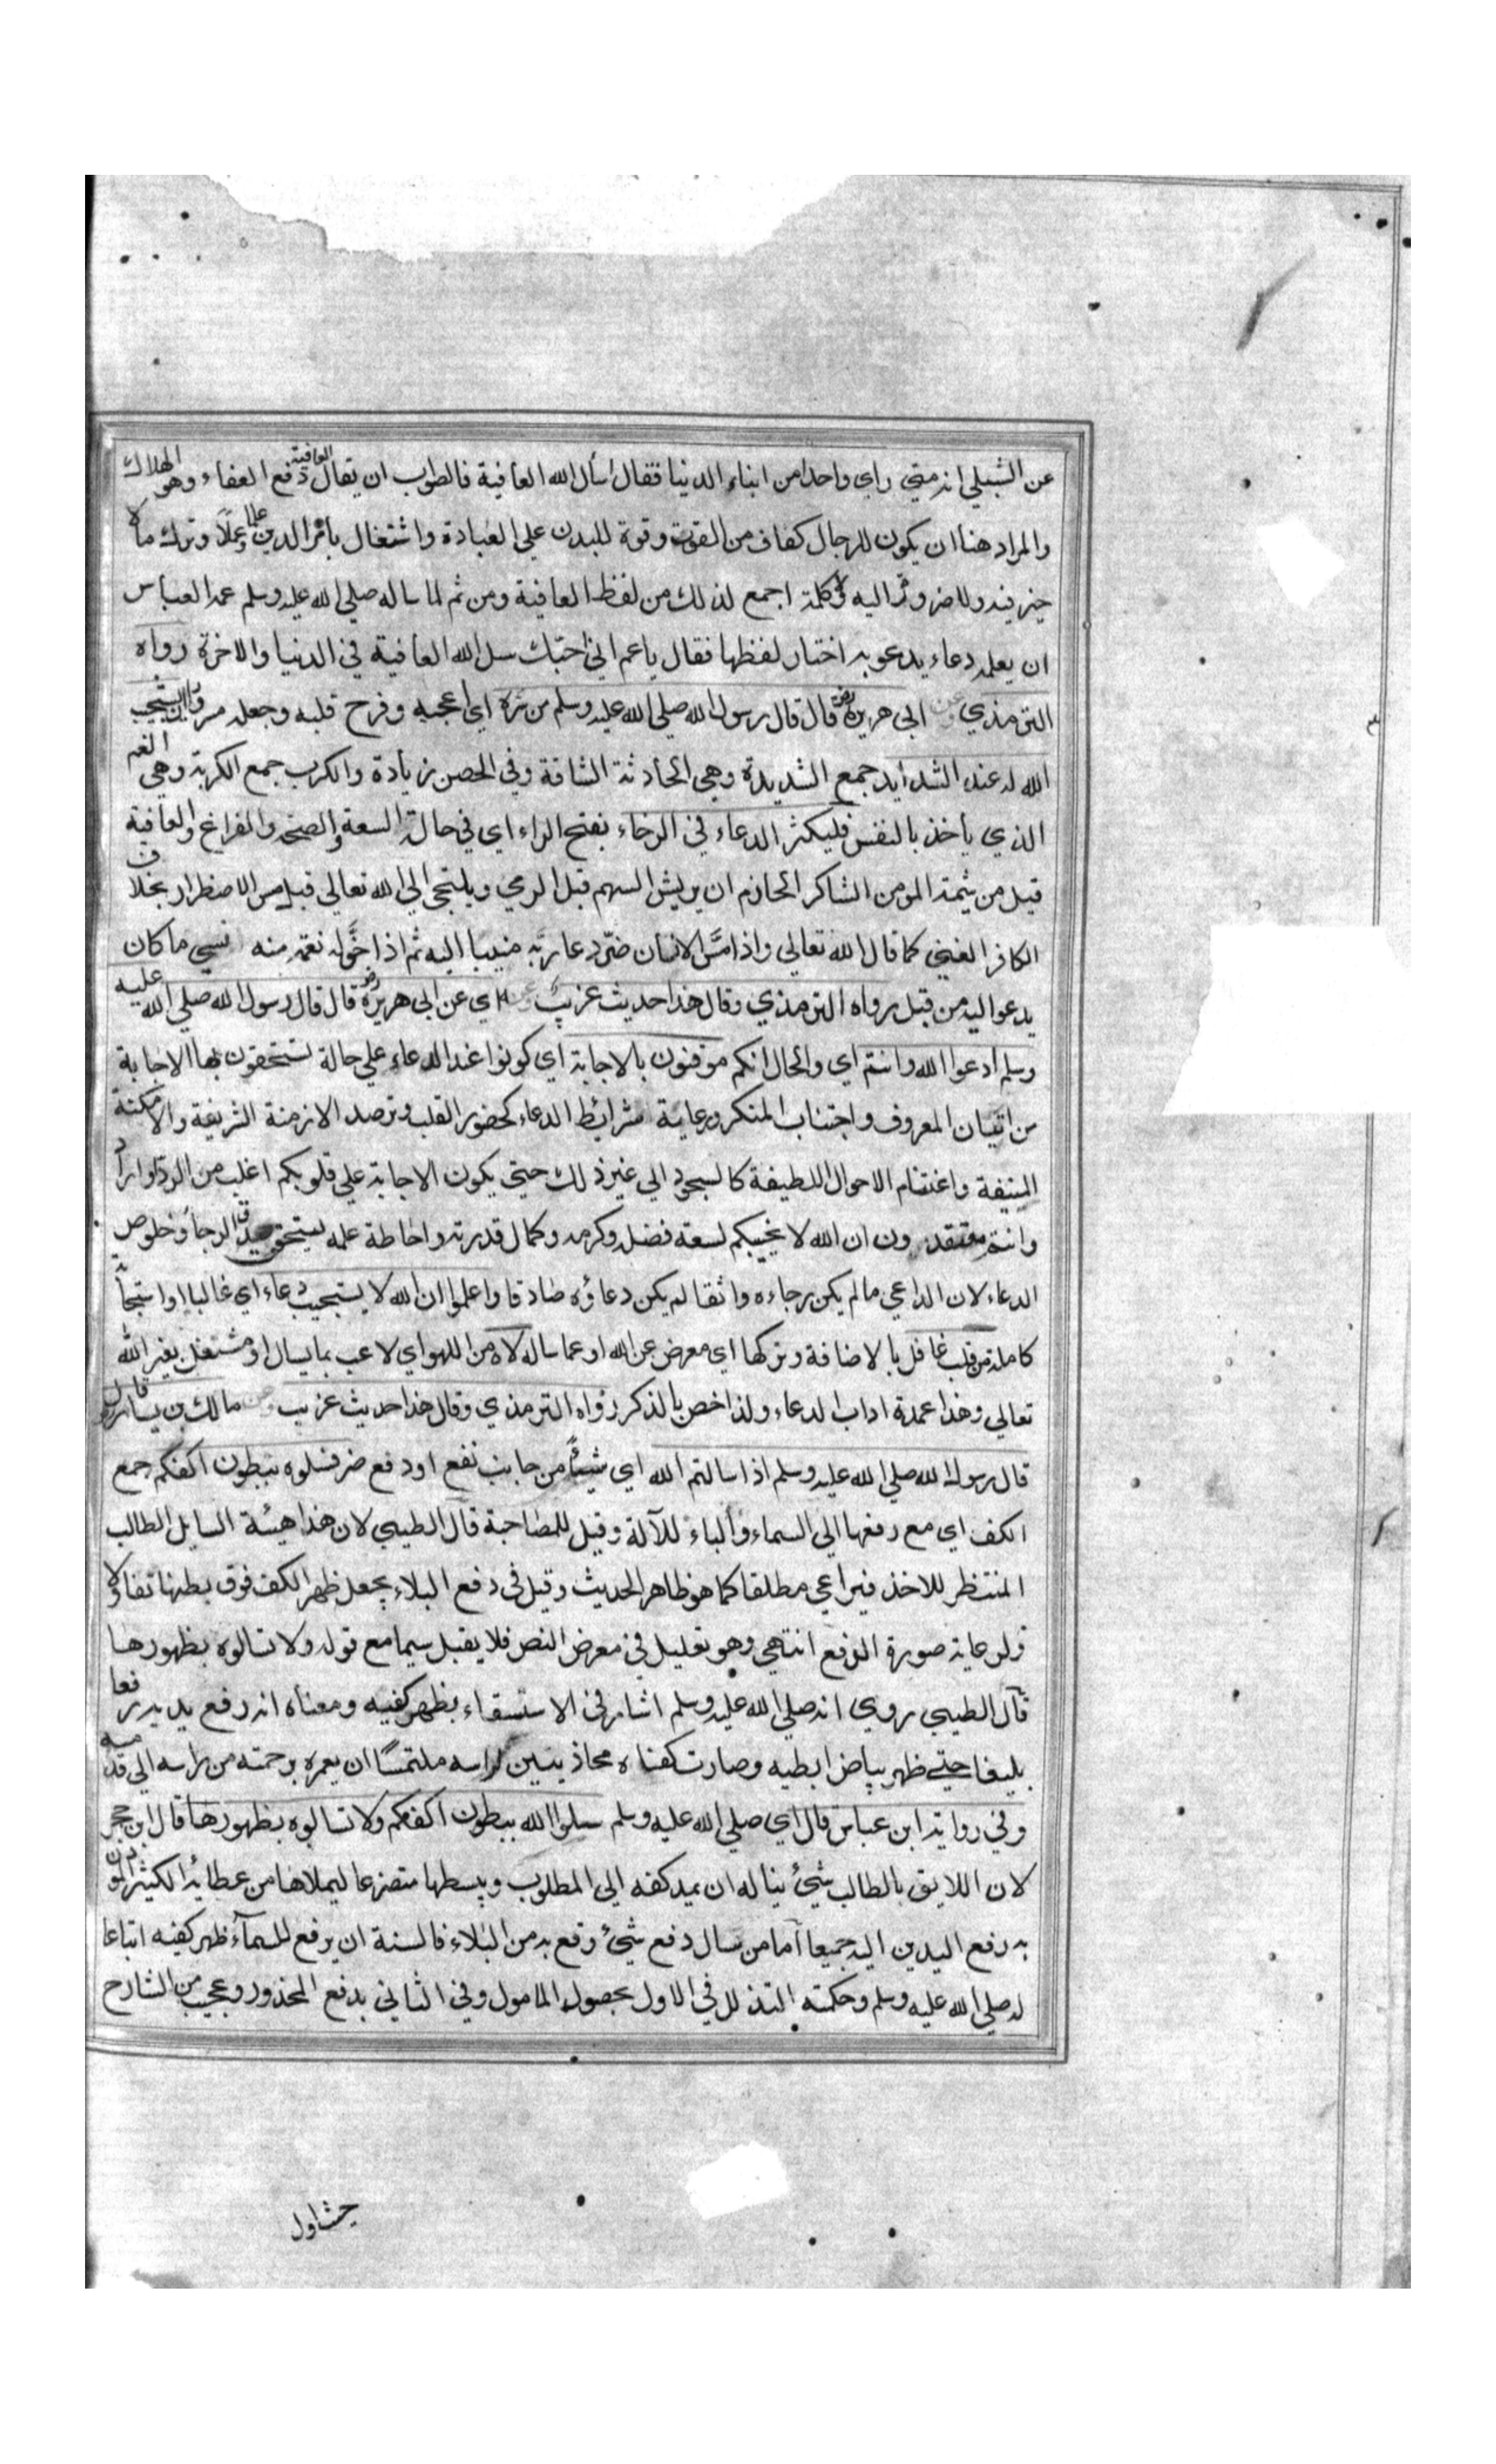 عن الشبلي انه متي راي واحدا من ابناء الدنيا فقال اسأل الله العافية فالصواب ان يقال العافية دفع العفاء وهو الهلاك
والمراد هنا ان يكون للرجال كفاف من القوت وقوة للبدن علي العبادة واشتغال بامر الدين علما وعملا وترك ما لا
خير فيه ولا ضرورة اليه ولا كلمة اجمع لذلك من لفظ العافية ومن ثم لما ساله صلي الله عليه وسلم عمه العباس
ان يعلمه دعاء يدعو به اختار لفظها فقال يا عم اني احبك سل الله العافية في الدنيا والاخرة رواه
الترمذي وعن ابي هريرة رض قال قال رسول الله صلي الله عليه وسلم من سره اي اعجبه وفرح قلبه وجعله مسرورا ان يستجيب
الله له عند الشدايد جمع الشديدة وهي الحادثة الشاقة وفي الحصن زيادة والكرب جمع الكربة وهي الغم
الذي يأخذ بالنفس فليكثر الدعاء في الرخاء بفتح الراء اي في حالة السعة والصحة والفراغ والعافية
قيل من شيمة المومن الشاكر الحازم ان يريش السهم قبل الرمي ويلتجي الي الله تعالي قبل مس الاضطرار بخلاف
الكافر الغبي كما قال الله تعالي واذا مس الانسان ضر دعا ربه منيبا اليه ثم اذا خوله نعمة منه نسي ما كان
يدعو اليه من قبل رواه الترمذي وقال هذا حديث غريب وعنه اي عن ابي هريرة رض قال قال رسول الله صلي الله عليه
وسلم ادعوا الله وانتم اي والحال انكم موقنون بالاجابة اي كونوا عند الدعاء علي حالة تستحقون بها الاجابة
من اتيان المعروف واجتناب المنكر ورعاية شرائط الدعاء كحضور القلب وترصد الازمنة الشريفة والامكنة
المنيفة واغتنام الاحوال اللطيفة كالسجود الي غير ذلك حتي يكون الاجابة علي قلوبكم اغلب من الرد او اراد
وانتم معتقدون ان الله لا يخيبكم لسعة فضله وكرمه وكمال قدرته واحاطة علمه ليتحقق صدق الرجاء وخلوص
الدعاء لان الداعي ما لم يكن رجاءه واثقا لم يكن دعاؤه صادقا واعلموا ان الله لا يستجيب دعاء اي غالبا او استجابة
كاملة من قلب غافل بالاضافة وتركها اي معرض عن الله او عما ساله لاه من اللهو اي لاعب بما يسال او مشتغل بغير الله
تعالي وهذا عمدة اداب الدعاء ولذا خص بالذكر رواه الترمذي وقال هذا حديث غريب وعن مالك بن يسار قال
قال رسول الله صلي الله عليه وسلم اذا سالتم الله اي شيئا من جانب نفع او دفع ضر فسلوه ببطون اكفكم جمع
الكف اي مع رفعها الي السماء والباء للآلة وقيل للمصاحبة قال الطيبي لان هذا هيئة السايل الطالب
المنتظر للاخذ فيراعي مطلقا كما هو ظاهر الحديث وقيل في دفع البلاء يجعل ظهر الكف فوق بطنها تفاولا
ولرعاية صورة الدفع انتهي وهو تعليل في معرض النص فلا يقبل سيما مع قوله ولا تسالوه بظهورها
قال الطيبي روي انه صلي الله عليه وسلم اشار في الاستسقاء بظهر كفيه ومعناه انه رفع يديه رفعا
بليغا حتي ظهر بياض ابطيه وصارت كفاه محاذيتين لراسه ملتمسا ان يعمره برحمته من راسه الي قدميه
وفي رواية ابن عباس قال اي صلي الله عليه وسلم سلوا الله ببطون اكفكم ولا تسالوه بظهورها قال ابن حجر
لان اللايق بالطالب شيئ يناله ان يمد كفه الي المطلوب ويبسطها متضرعا ليملاها من عطائه الكثير الموذن
به رفع اليدين اليه جميعا اما من سال دفع شيئ وقع به من البلاء فالسنة ان يرفع للسماء ظهر كفيه اتباعا
له صلي الله عليه وسلم وحكمته التذلل في الاول بحصول المامول وفي الثاني بدفع المحذور وعجيب من الشارح